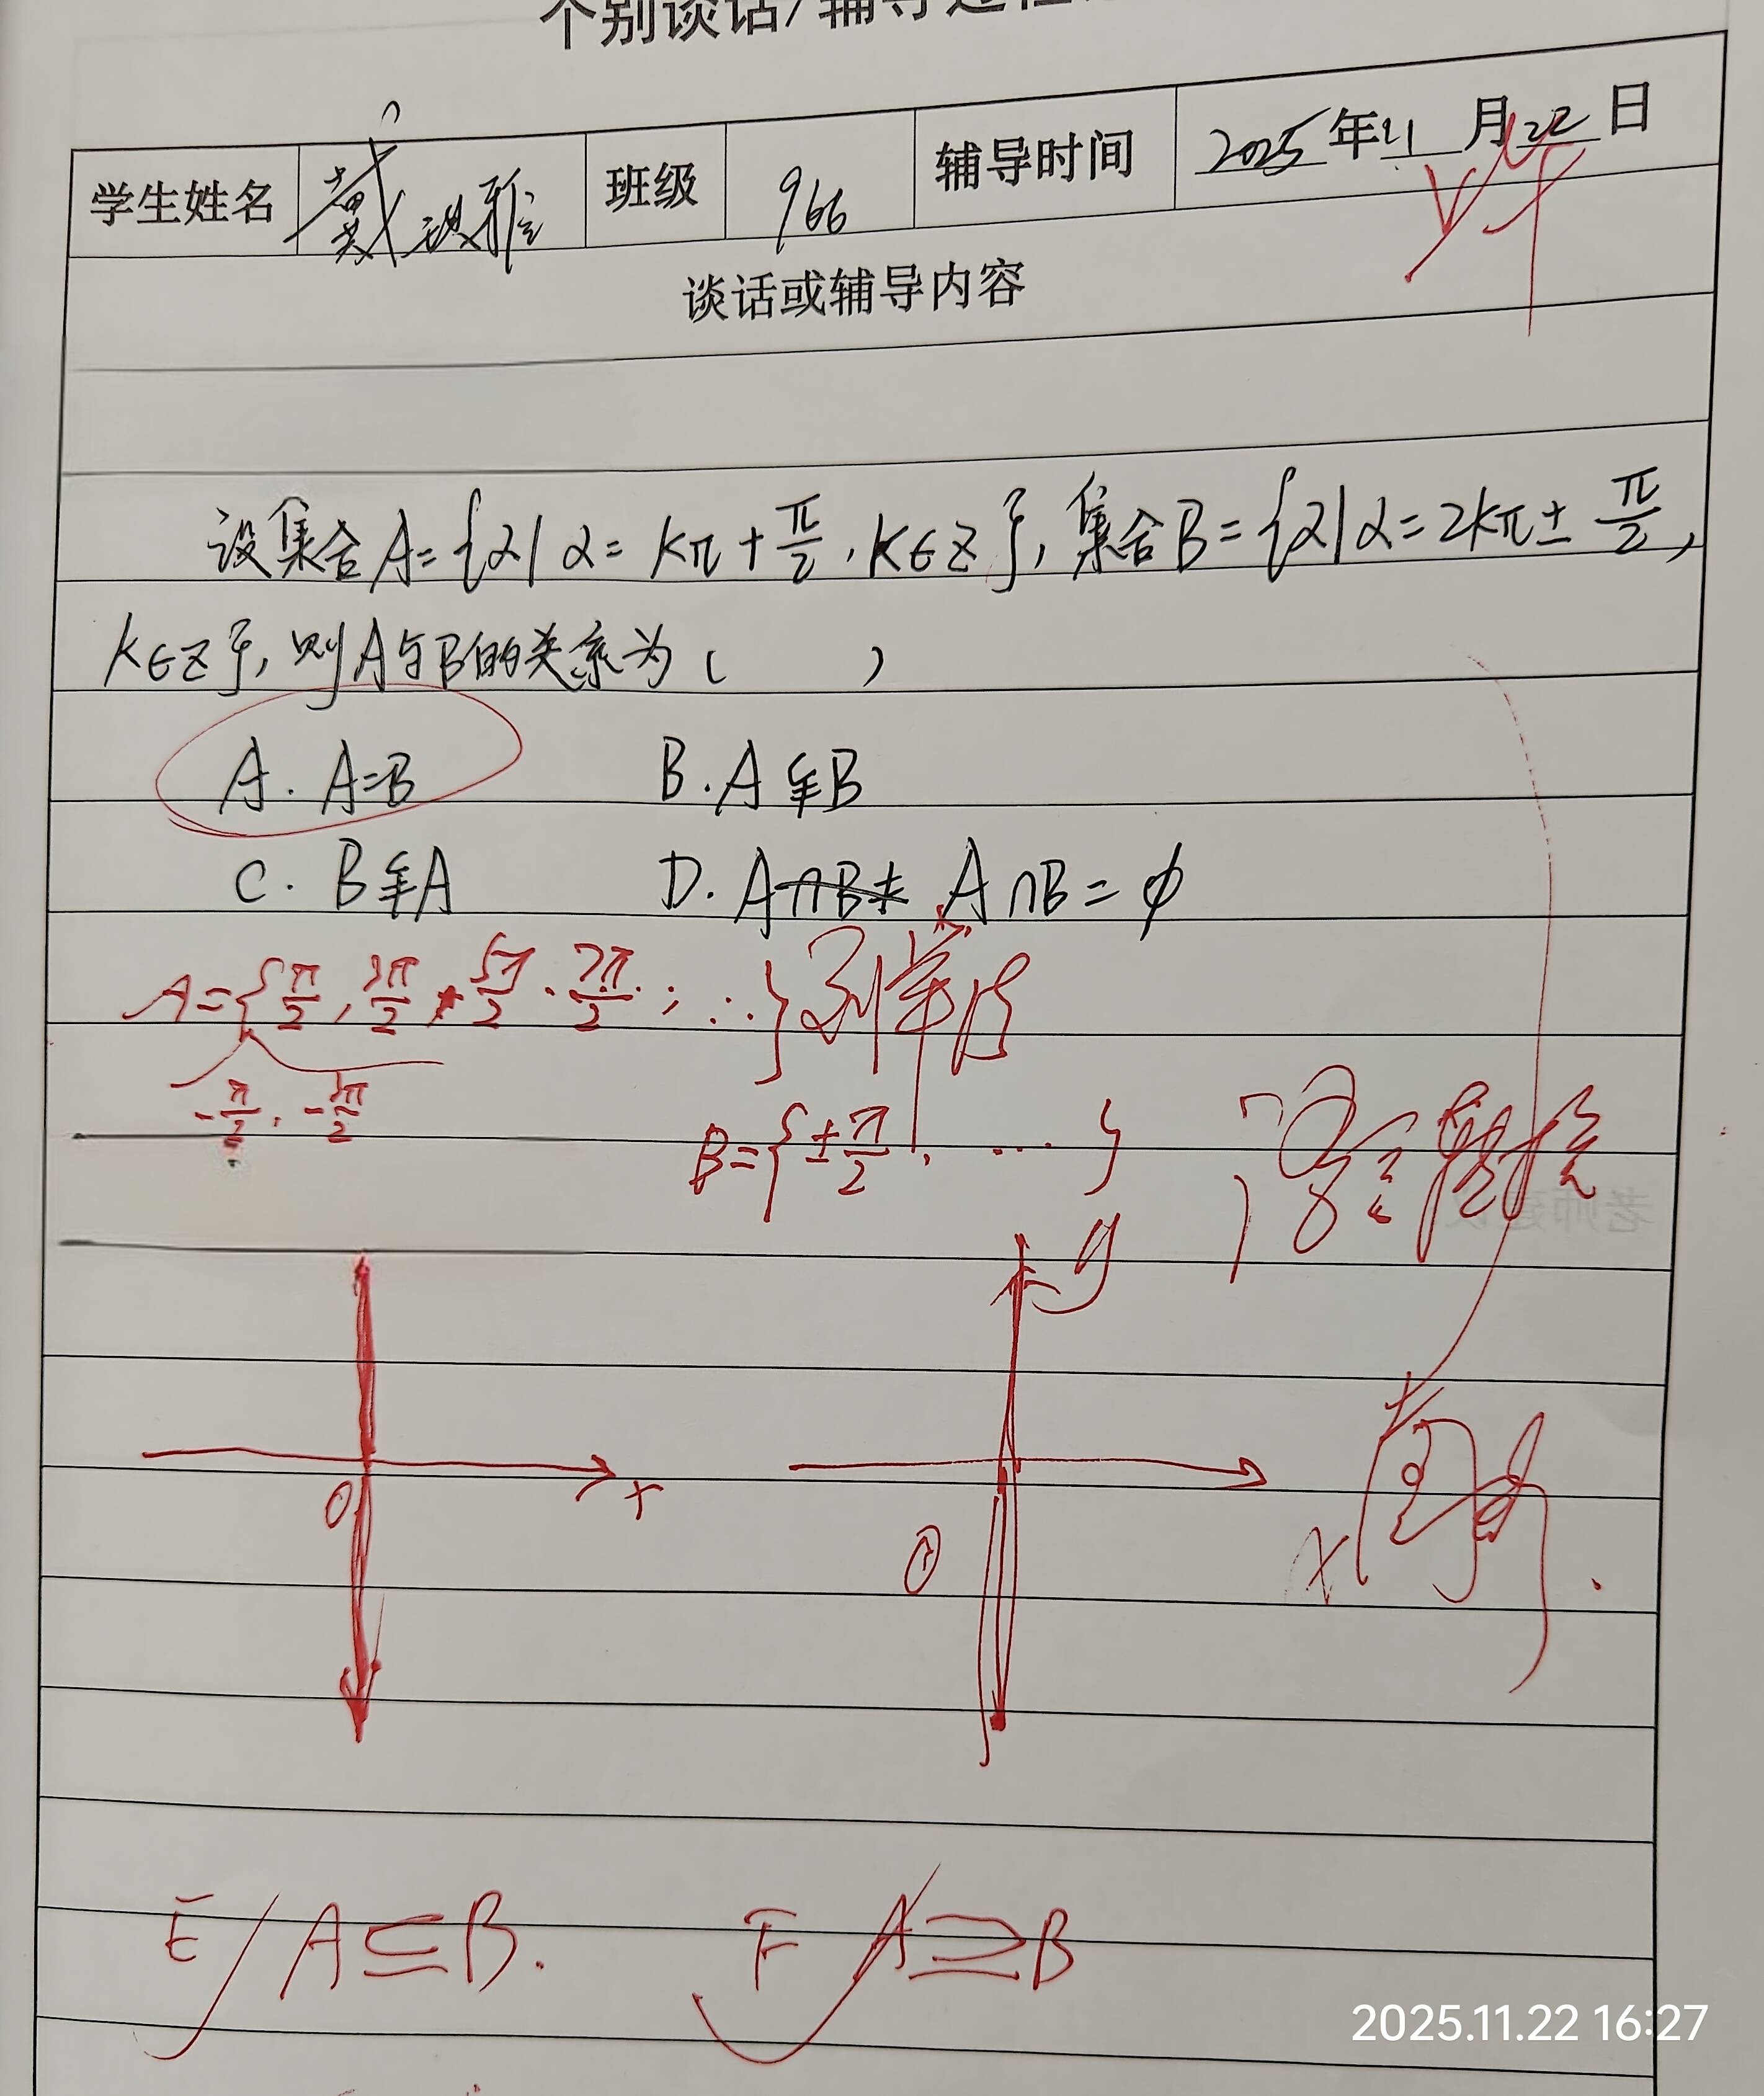 个别谈话/辅导过程
学生姓名 戴 雅 班级 966 辅导时间 2025年11月22日
谈话或辅导内容
设集合A={α|α=kπ+π/2,k∈Z},集合B={α|α=2kπ±π/2,
k∈Z},则A与B的关系为( )
A. A=B B. A⫋B
C. B⫋A D. A∩B≠ A∩B=φ
A={π/2, 3π/2, 5π/2, 7π/2, ; …} 列举法
-π/2, -3π/2
B={±π/2, … }
y
O x
O x
E A⊆B. F A⊇B
2025.11.22 16:27